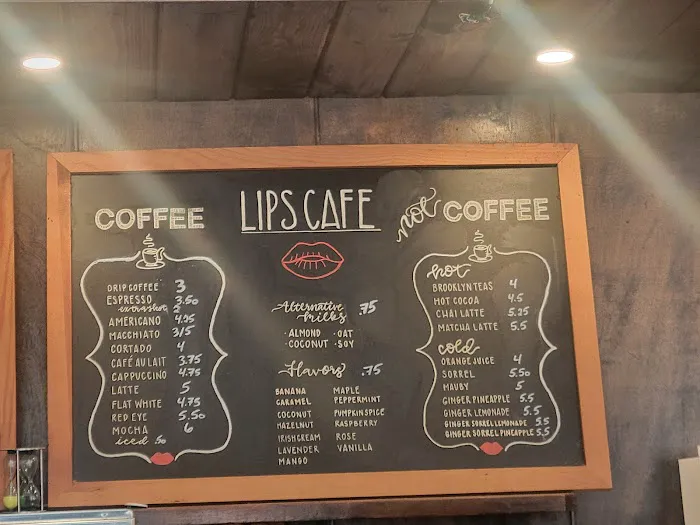 LIPS CAFE
COFFEE
DRIP COFFEE 3
ESPRESSO 3.50
extra shot 2
AMERICANO 4.25
MACCHIATO 3/5
CORTADO 4
CAFÉ AU LAIT 3.75
CAPPUCCINO 4.75
LATTE 5
FLAT WHITE 4.75
RED EYE 5.50
MOCHA 6
iced .50
Alternative milks .75
· ALMOND · OAT
· COCONUT · SOY
Flavors .75
BANANA MAPLE
CARAMEL PEPPERMINT
COCONUT PUMPKIN SPICE
HAZELNUT RASPBERRY
IRISH CREAM ROSE
LAVENDER VANILLA
MANGO
not COFFEE
hot
BROOKLYN TEAS 4
HOT COCOA 4.5
CHAI LATTE 5.25
MATCHA LATTE 5.5
cold
ORANGE JUICE 4
SORREL 5.50
MAUBY 5
GINGER PINEAPPLE 5.5
GINGER LEMONADE 5.5
GINGER SORREL LEMONADE 5.5
GINGER SORREL PINEAPPLE 5.5